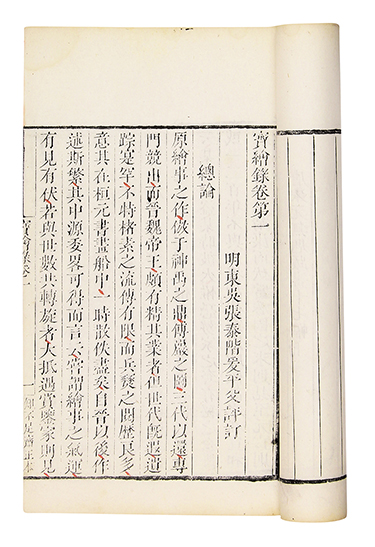 寶繪錄卷第一
明東吳張泰階爰平父評訂
總論
原繪事之作倣于神禹之鼎傅巖之圖三代以還專
門競出而晉魏帝王頗有精其業者但世代旣遐遺
踪寔罕不特格素之流傳有限而兵燹之閱歷良多
意其在桓元書畫船中一時散佚盡矣自晉以後作
述斯繁其中源委畧可得而言云嘗謂繪事之氣運
有見有伏若與世數共轉旋者大抵遇賞鑒家則見
寶繪錄卷一 一 知不足齋正本